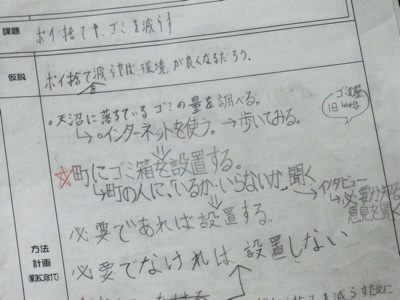 課題
ポイ捨てや、ゴミを減らす
仮説
ポイ捨て減らせば、環境が良くなるだろう。
。天沼に落ちているゴミの量を調べる。
↳インターネットを使う。→歩いてみる。
☆町にゴミ箱を設置する。
↳町の人に、いるか、いらないか、聞く
↳インタビュー
意見を聞く
必要であれば設置する。
必要でなければ設置しない
方法
計画